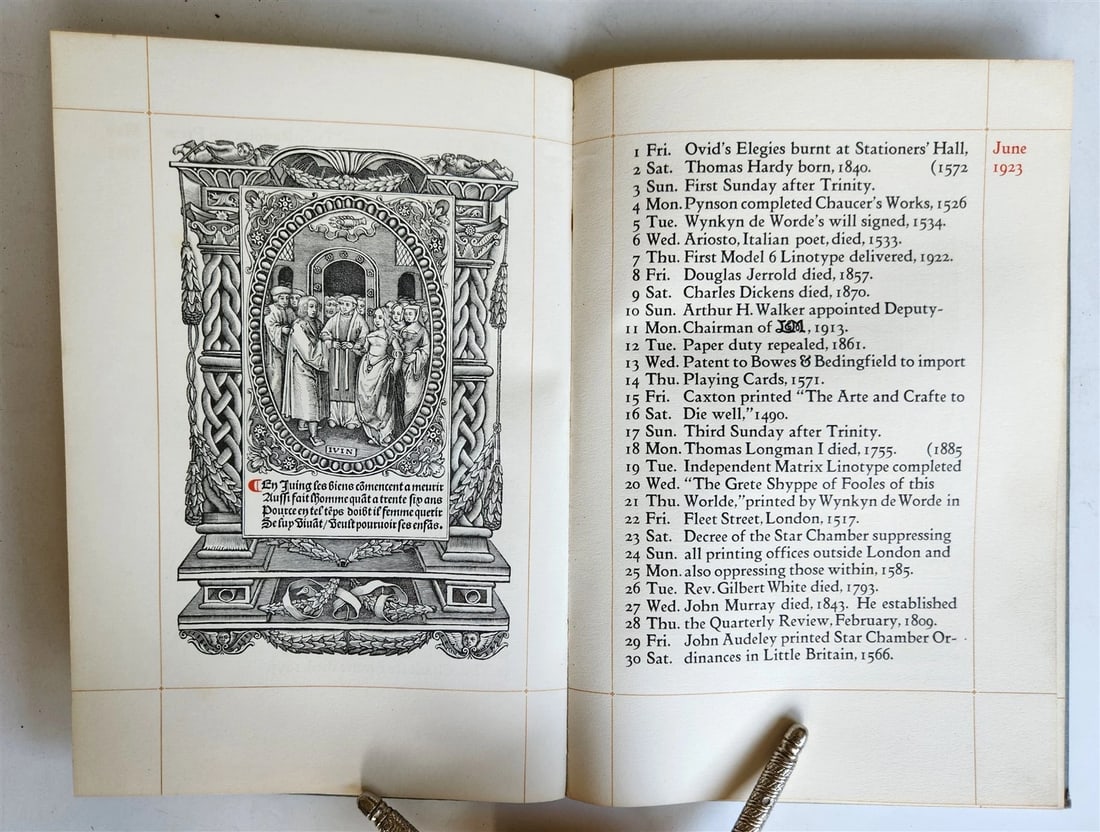 IVIN
En Juing les biens cõmencent a meurir
Aussi fait lhomme quãt a trente six ans
Pource en tel tẽps doibt il femme querir
Se luy viuãt / veult pouruoir ses enfãs.
June
1923
1 Fri. Ovid's Elegies burnt at Stationers' Hall,
2 Sat. Thomas Hardy born, 1840. (1572
3 Sun. First Sunday after Trinity.
4 Mon. Pynson completed Chaucer's Works, 1526
5 Tue. Wynkyn de Worde's will signed, 1534.
6 Wed. Ariosto, Italian poet, died, 1533.
7 Thu. First Model 6 Linotype delivered, 1922.
8 Fri. Douglas Jerrold died, 1857.
9 Sat. Charles Dickens died, 1870.
10 Sun. Arthur H. Walker appointed Deputy-
11 Mon. Chairman of , 1913.
12 Tue. Paper duty repealed, 1861.
13 Wed. Patent to Bowes & Bedingfield to import
14 Thu. Playing Cards, 1571.
15 Fri. Caxton printed "The Arte and Crafte to
16 Sat. Die well," 1490.
17 Sun. Third Sunday after Trinity.
18 Mon. Thomas Longman I died, 1755. (1885
19 Tue. Independent Matrix Linotype completed
20 Wed. "The Grete Shyppe of Fooles of this
21 Thu. Worlde," printed by Wynkyn de Worde in
22 Fri. Fleet Street, London, 1517.
23 Sat. Decree of the Star Chamber suppressing
24 Sun. all printing offices outside London and
25 Mon. also oppressing those within, 1585.
26 Tue. Rev. Gilbert White died, 1793.
27 Wed. John Murray died, 1843. He established
28 Thu. the Quarterly Review, February, 1809.
29 Fri. John Audeley printed Star Chamber Or-
30 Sat. dinances in Little Britain, 1566.